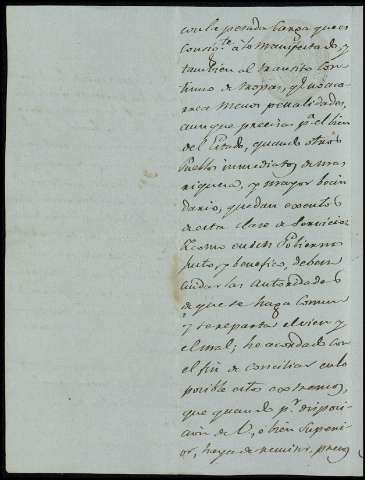 con la pesada Carga que es
consigte. a lo manifestado, y
tambien al transito con
tinuo de tropas, q.e no aca
rrea menos penalidades,
aunque precisas p.r el bien
del Estado, quando otros
Pueblos inmediatos de mas
riqueza, y mayor becin
dario, quedan exentos
de esta clase de servicios
como en un Gobierno
justo, y benefico, deben
cuidar las autoridades
de que se haga comun
y se reparta el vien y
el mal; he acordado con
el fin de conciliar en lo
posible estos extremos,
que quando p.r disposi
cion de V., o bien Superi
or, haya de remitir presos